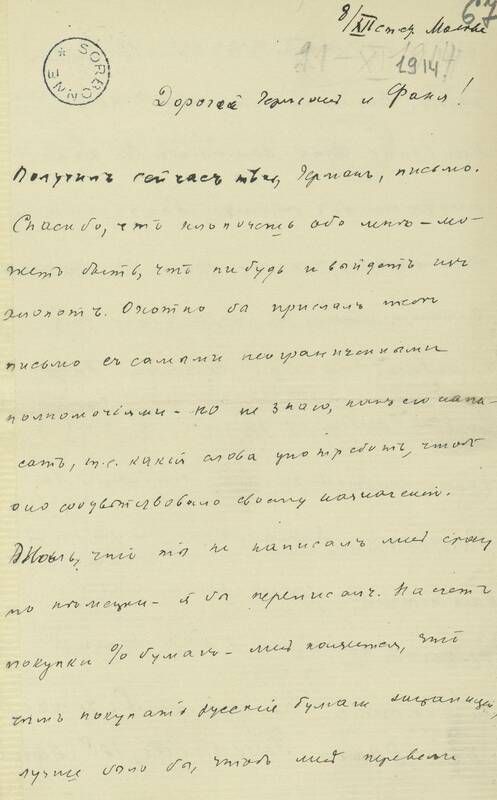 67
8/XII ст. ст. Москва
21-IX-1914
1914?
SORBONNE
Дорогой Герман и Фаня!
Получилъ сейчасъ твое, Германъ, письмо.
Спасибо, что хлопочешь обо мнѣ – мо-
жетъ быть, что нибудь и выйдетъ изъ
хлопотъ. Охотно бы прислалъ тебѣ
письмо съ самыми неограниченными
полномочіями – но не знаю, какъ его напи-
сать, т.е. какія слова употребить, чтобъ
оно соотвѣтствовало своему назначенію.
Жаль, что ты не написалъ мнѣ сразу
по нѣмецки – я бы переписалъ. На счетъ
покупки % бумагъ – мнѣ кажется, что
чѣмъ покупать русскія бумаги заграницей,
лучше было бы, чтобъ мнѣ перевели